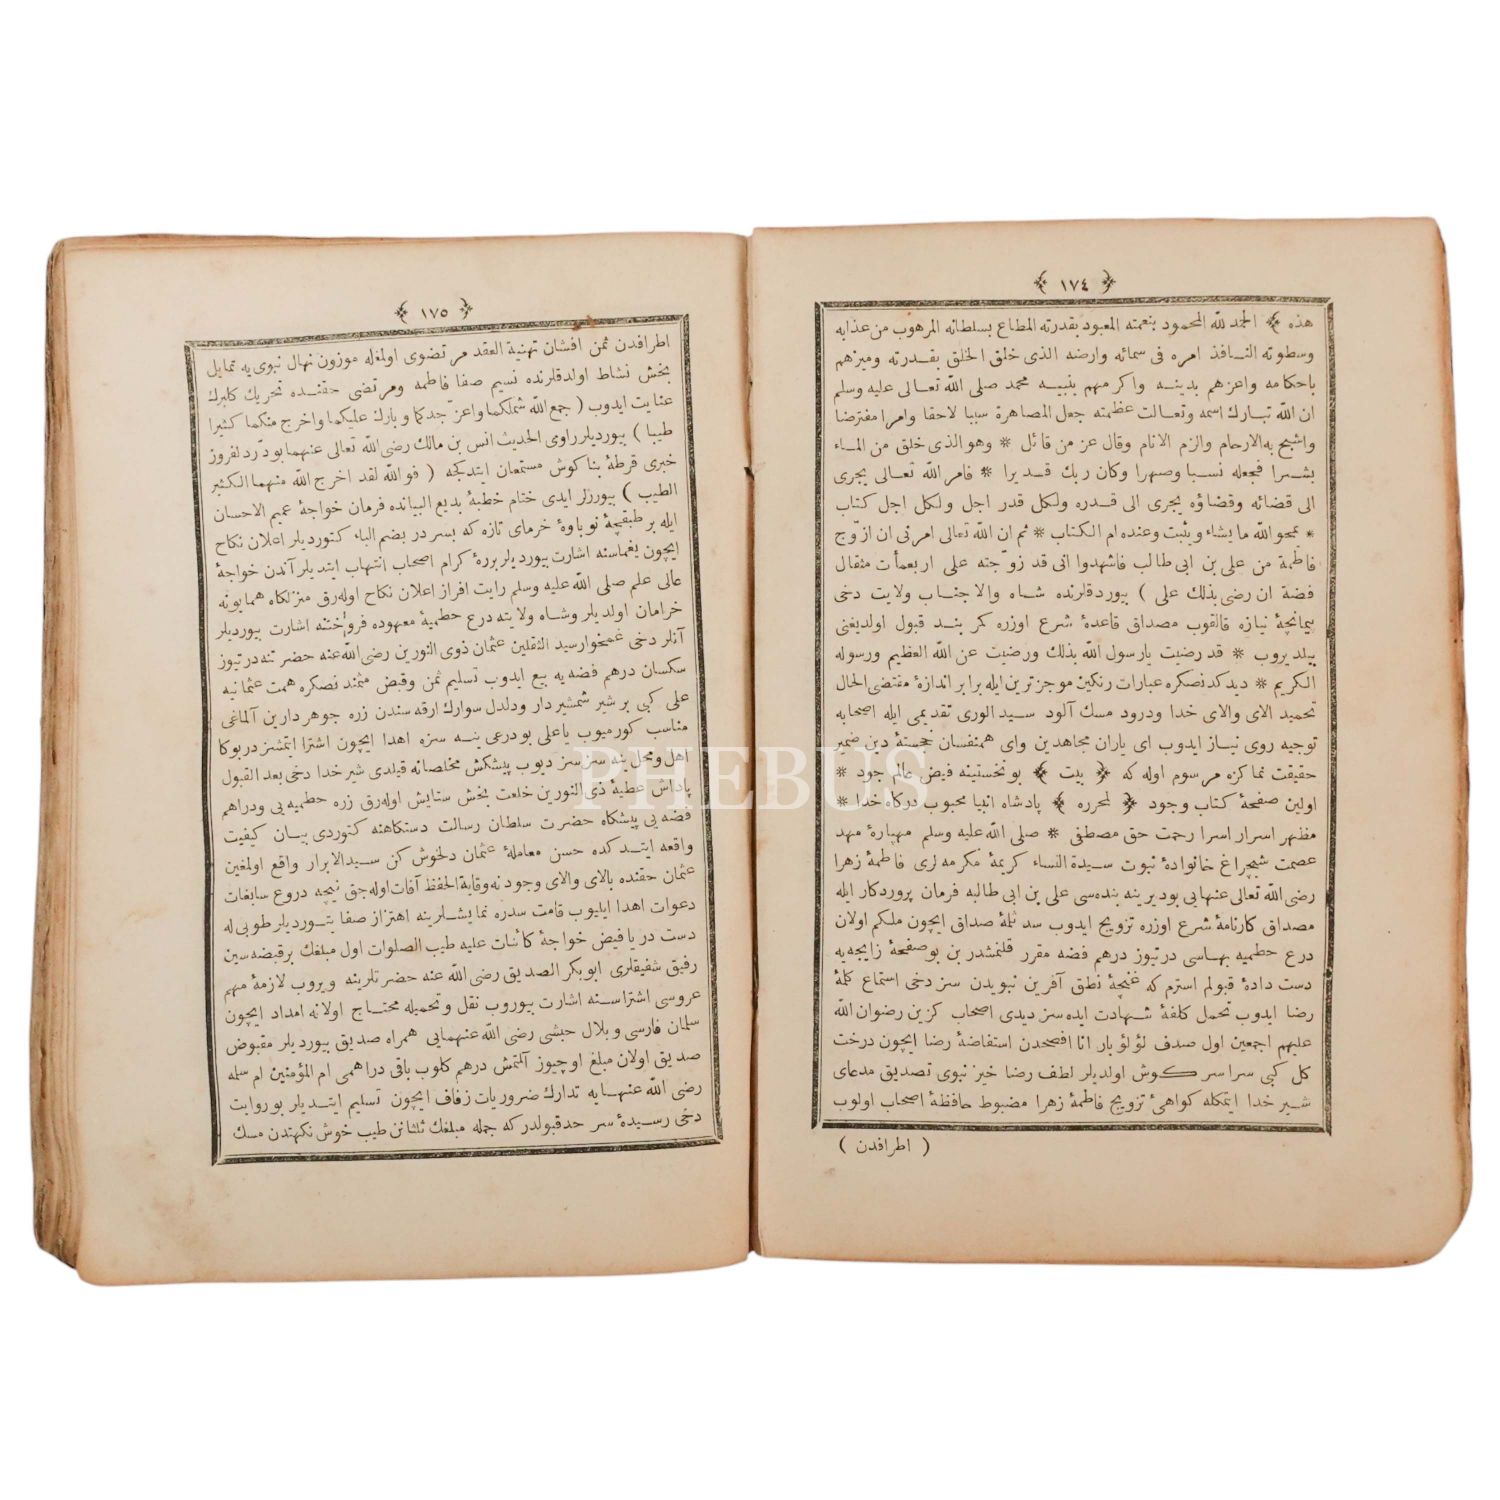 ﴿ ١٧٤ ﴾
هذه ﴾ الحمد لله المحمود بنعمته المعبود بقدرته المطاع بسلطانه المرهوب من عذابه
وسطوته النافذ امره فى سمائه وارضه الذى خلق الخلق بقدرته وميزهم
باحكامه واعزهم بدينه واكرمهم بنبيه محمد صلى الله تعالى عليه وسلم
ان الله تبارك اسمه وتعالت عظمته جعل المصاهرة سببا لاحقا وامرا مفترضا
واشبح به الارحام والزم الانام وقال عز من قائل * وهو الذى خلق من الماء
بشرا فجعله نسبا وصهرا وكان ربك قديرا * فامر الله تعالى يجرى
الى قضائه وقضاؤه يجرى الى قدره ولكل قدر اجل ولكل اجل كتاب
* يمحو الله ما يشاء ويثبت وعنده ام الكتاب * ثم ان الله تعالى امرنى ان ازوّج
فاطمة من على بن ابى طالب فاشهدوا انى قد زوّجته على اربعمأت مثقال
فضة ان رضى بذلك على ) بيوردقلرنده شاه والاجناب ولايت دخى
پيمانچهٔ نيازه قالقوب مصداق قاعدهٔ شرع اوزره كر بند قبول اولديغنى
بيلديروب * قد رضيت يارسول الله بذلك ورضيت عن الله العظيم ورسوله
الكريم * ديدكدنصكره عبارات رنكين موجزترين ايله برابر اندازهٔ مقتضى الحال
تحميد الاى والاى خدا ودرود مسك آلود سيد الورى تقديمى ايله اصحابه
توجيه روى نياز ايدوب اى ياران مجاهدين واى همنفسان خجستهٔ دين ضمير
حقيقت نماكزه مرسوم اوله كه ﴿ بيت ﴾ بو نخستينه فيض عالم جود *
اولين صفحهٔ كتاب وجود ﴿ لمحرره ﴾ پادشاه انبيا محبوب درگاه خدا *
مظهر اسرار اسرا رحمت حق مصطفى * صلى الله عليه وسلم مهپارهٔ مهد
عصمت شبچراغ خانوادهٔ نبوت سيدة النساء كريمهٔ مكرمه لرى فاطمهٔ زهرا
رضى الله تعالى عنهايى بوديرينه بنده سى على بن ابى طالبه فرمان پروردكار ايله
مصداق كارنامهٔ شرع اوزره تزويج ايدوب سد ثلمهٔ صداق ايچون ملكم اولان
درع حطميه بهاسى درتيوز درهم فضه مقرر قلنمشدر بن بو صفحهٔ زايجه يه
دست دادهٔ قبولم استرم كه غنچهٔ نطق آفرين نبويدن سز دخى استماع كلهٔ
رضا ايدوب تحمل كلفهٔ شهادت ايده سز ديدى اصحاب كزين رضوان الله
عليهم اجمعين اول صدف لؤلؤ بار انا افصحدن استفاضهٔ رضا ايچون درخت
كل كبى سراسر كوش اولديلر لطف رضا خيز نبوى تصديق مدعاى
شير خدا ايتمكله كواهىٔ تزويج فاطمهٔ زهرا مضبوط حافظهٔ اصحاب اولوب
( اطرافدن )
﴿ ١٧٥ ﴾
اطرافدن ثمن افشان تهنية العقد مرتضوى اولمغله موزون نهال نبوى يه تمايل
بخش نشاط اولدقلرنده نسيم صفا فاطمه ومرتضى حقنده تحريك كلبرك
عنايت ايدوب ( جمع الله شملكما واعز جدكما وبارك عليكما واخرج منكما كثيرا
طيبا ) بيورديلر راوى الحديث انس بن مالك رضى الله تعالى عنهما بودرد لفروز
خبرى قرطهٔ بناكوش مستمعان ايتدكجه ( فوالله لقد اخرج الله منهما الكثير
الطيب ) بيوررلر ايدى ختام خطبهٔ بديع البيانده فرمان خواجهٔ عميم الاحسان
ايله بر طبقچهٔ نوباوهٔ خرماى تازه كه بسر در بضم الباء كتورديلر اعلان نكاح
ايچون يغماسنه اشارت بيورديلر بررهٔ كرام اصحاب انتهاب ايتديلر آندن خواجهٔ
عالى علم صلى الله عليه وسلم رايت افراز اعلان نكاح اوله رق منزلكاه همايونه
خرامان اولديلر وشاه ولايته درع حطميهٔ معهوده فروختنه اشارت بيورديلر
آنلر دخى غمخوار سيد الثقلين عثمان ذوى النورين رضى الله عنه حضرتنه درتيوز
سكسان درهم فضه يه بيع ايدوب تسليم ثمن وقبض مثمند نصكره همت عثمانيه
على كبى بر شير شمشيردار ودلدل سوارك ارقه سندن زره جوهر دارين آلماغى
مناسب كورميوب ياعلى بو درعى ينه سزه اهدا ايچون اشترا ايتمشز در بوكا
اهل ومحل ينه سزسز ديوب پيشكش مخلصانه قيلدى شير خدا دخى بعد القبول
پاداش عطيهٔ ذى النورين خلعت بخش ستايش اوله رق زره حطميه يى ودراهم
فضه يى پيشكاه حضرت سلطان رسالت دستكاهنه كتوردى بيان كيفيت
واقعه ايتدكده حسن معاملهٔ عثمان دلخوش كن سيد الابرار واقع اولمغين
عثمان حقنده بالاى والاى وجودنه وقاية الحفظ آفات اوله جق نيچه دروع سابغات
دعوات اهدا ايليوب قامت سدره نمايشلرينه اهتزاز صفا بتورديلر طوبى له
دست دريا فيض خواجهٔ كائنات عليه طيب الصلوات اول مبلغك بر قبضه سين
رفيق شفيقلرى ابو بكر الصديق رضى الله عنه حضرتلرينه ويروب لازمهٔ مهم
عروسى اشتراسنه اشارت بيوروب نقل وتحميله محتاج اولانه امداد ايچون
سلمان فارسى وبلال حبشى رضى الله عنهمايى همراه صديق بيورديلر مقبوض
صديق اولان مبلغ اوچيوز آلتمش درهم كلوب باقى دراهمى ام المؤمنين ام سلمه
رضى الله عنهايه تدارك ضروريات زفاف ايچون تسليم ايتديلر بو روايت
دخى رسيدهٔ سرحد قبولدر كه جمله مبلغك ثلثانن طيب خوش نكهتدن مسك
PHEBUS